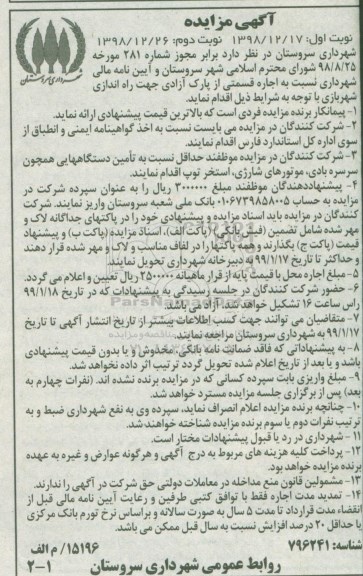 آگهی مزایده
نوبت اول: ۱۳۹۸/۱۲/۱۷ نوبت دوم: ۱۳۹۸/۱۲/۲۶
شهرداری سروستان
شهرداری سروستان در نظر دارد برابر مجوز شماره ۲۸۱ مورخه
۹۸/۸/۲۵ شورای محترم اسلامی شهر سروستان و آیین نامه مالی
شهرداری نسبت به اجاره قسمتی از پارک آزادی جهت راه اندازی
شهربازی با توجه به شرایط ذیل اقدام نماید.
۱- پیمانکار برنده مزایده فردی است که بالاترین قیمت پیشنهادی ارائه نماید.
۲- شرکت کنندگان در مزایده می بایست نسبت به اخذ گواهینامه ایمنی و انطباق از
سوی اداره کل استاندارد فارس اقدام نمایند.
۳- شرکت کنندگان در مزایده موظفند حداقل نسبت به تأمین دستگاههایی همچون
سرسره بادی، موتورهای شارژی، استخر توپ اقدام نمایند.
۴- پیشنهاددهندگان موظفند مبلغ ۳۰۰۰۰۰۰ ریال را به عنوان سپرده شرکت در
مزایده به حساب ۰۱۰۶۷۳۹۸۵۸۰۰۵ بانک ملی شعبه سروستان واریز نمایند. شرکت
کنندگان در مزایده باید اسناد مزایده و پیشنهادی خود را در پاکتهای جداگانه لاک و
مهر شده شامل تضمین (فیش بانکی) (پاکت الف)، اسناد مزایده (پاکت ب) و پیشنهاد
قیمت (پاکت ج) بگذارند و همه پاکتها را در لفاف مناسب و لاک و مهر شده قرار دهند
و حداکثر تا تاریخ ۹۹/۱/۱۷ به دبیرخانه شهرداری تحویل نمایند.
۵- مبلغ اجاره محل با قیمت پایه از قرار ماهیانه ۲۵۰۰۰۰۰ ریال تعیین و اعلام می گردد.
۶- حضور شرکت کنندگان در جلسه رسیدگی به پیشنهادات که در تاریخ ۹۹/۱/۱۸
راس ساعت ۱۶ تشکیل خواهد شد، آزاد می باشد.
۷- متقاضیان می توانند جهت کسب اطلاعات بیشتر از تاریخ انتشار آگهی تا تاریخ
۹۹/۱/۱۷ به شهرداری سروستان مراجعه نمایند.
۸- به پیشنهاداتی که فاقد ضمانت نامه بانکی، مخدوش و یا بدون قیمت پیشنهادی
باشد و یا بعد از تاریخ اعلام شده تحویل گردد ترتیب اثر داده نخواهد شد.
۹- مبلغ واریزی بابت سپرده کسانی که در مزایده برنده نشده اند. (نفرات چهارم به
بعد) پس از برگزاری جلسه مزایده مسترد خواهد شد.
۱۰- چنانچه برنده مزایده اعلام انصراف نماید، سپرده وی به نفع شهرداری ضبط و به
ترتیب نفرات دوم یا سوم برنده مزایده شناخته خواهند شد.
۱۱- شهرداری در رد یا قبول پیشنهادات مختار است.
۱۲- پرداخت کلیه هزینه های مربوط به درج آگهی و هرگونه عوارض و غیره به عهده
برنده مزایده خواهد بود.
۱۳- مشمولین قانون منع مداخله در معاملات دولتی حق شرکت در آگهی را ندارند.
۱۴- تمدید مدت اجاره فقط با توافق کتبی طرفین و رعایت آیین نامه مالی قبل از
انقضاء مدت قرارداد تا مدت ۵ سال به صورت سالانه و براساس نرخ تورم بانک مرکزی
یا حداقل ۲۰ درصد افزایش نسبت به سال قبل ممکن می باشد.
شناسه: ۷۹۶۲۴۱ ۱۵۱۹۶/ م الف
روابط عمومی شهرداری سروستان ۱-۲